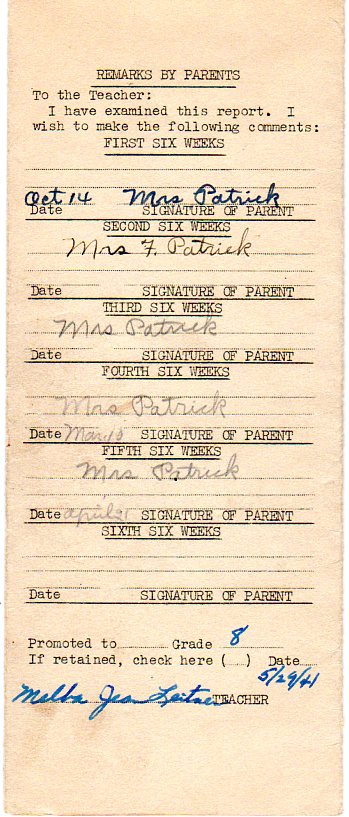 REMARKS BY PARENTS
To the Teacher:
I have examined this report. I
wish to make the following comments:
FIRST SIX WEEKS
Oct 14 Mrs Patrick
Date SIGNATURE OF PARENT
SECOND SIX WEEKS
Mrs F. Patrick
Date SIGNATURE OF PARENT
THIRD SIX WEEKS
Mrs Patrick
Date SIGNATURE OF PARENT
FOURTH SIX WEEKS
Mrs Patrick
Date SIGNATURE OF PARENT
FIFTH SIX WEEKS
Mrs Patrick
Date SIGNATURE OF PARENT
SIXTH SIX WEEKS
Date SIGNATURE OF PARENT
Promoted to Grade 8
If retained, check here ( ) Date
5/29/41
Melba Jean Leitner TEACHER